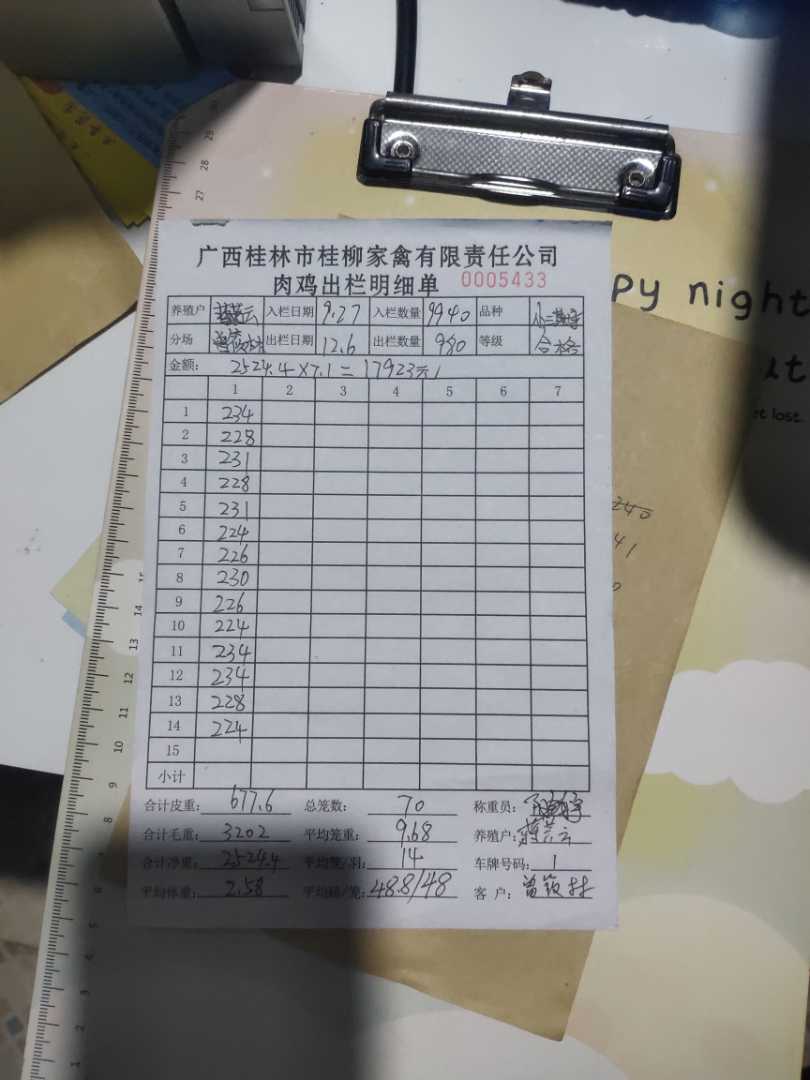 广西桂林市桂柳家禽有限责任公司
肉鸡出栏明细单 0005433
养殖户 入栏日期 9.27 入栏数量 9940 品种
分场 出栏日期 12.6 出栏数量 980 等级 合格
金额: 2524.4×7.1=17923元
1 2 3 4 5 6 7
1 234
2 228
3 231
4 228
5 231
6 224
7 226
8 230
9 226
10 224
11 234
12 234
13 228
14 224
15
小计
合计皮重: 677.6 总笼数: 70 称重员:
合计毛重: 3202 平均笼重: 9.68 养殖户: 云
合计净重: 2524.4 平均笼/羽: 14 车牌号码: 1
平均体重: 2.58 平均 /笼: 48.8/48 客 户: 曾
py night
ut
et lost.
240
41
29
28
27
14
13
12
11
10
9
8
7
6
5
4
3
2
1